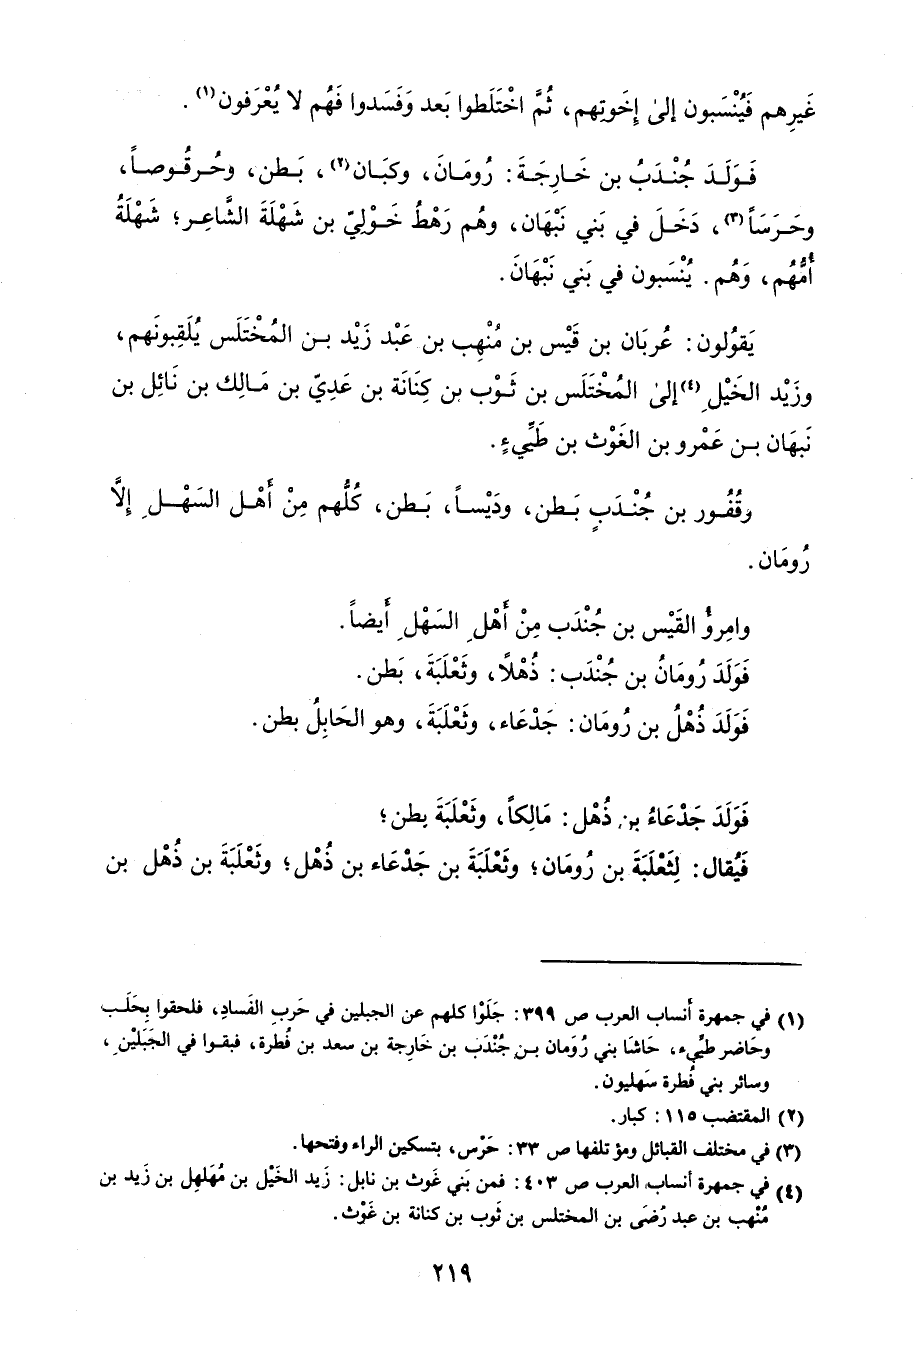 غَيرِهم فَيُنْسَبون إلىٰ إخَوتِهم، ثُمَّ اخْتَلَطوا بَعد وَفَسَدوا فَهُم لا يُعْرَفون(١).
فَـوَلَـدَ جُنْـدَبُ بن خَـارِجَـةَ: رُومَـانَ، وكبَـان(٢)، بَـطن، وحُـرقُـوصـاً،
وحَـرَسَاً(٣)، دَخَـلَ في بَني نَبْهَان، وهُم رَهْطُ خَـوْلِيّ بن شَهْلَةَ الشَّاعِـر؛ شَهْلَةُ
أُمُّهُم، وَهُم. يُنْسَبون في بَني نَبْهَانَ.
يَقوُلون: عُربَان بن قَيْس بن مُنْهِب بن عَبْد زَيْد بـن المُخْتَلَس يُلَقِبونَهم،
وزَيْد الخَيْلِ(٤) إلىٰ المُخْتَلَس بن ثَـوْب بن كِنَانَة بن عَدِيّ بن مَـالِك بن نَائِل بن
نَبهَان بـن عَمْرو بن الغَوْث بن طَيِّيءٍ.
وقُفُـور بن جُنْـدَبٍ بَـطن، ودَيْسـاً، بَـطن، كُلُّهم مِنْ أَهْـل السَهْـلِ إلَّا
رُومَان.
وامِرؤُ القَيْس بن جُنْدَب مِنْ أَهْلِ السَهْلِ أَيضاً.
فَوَلَدَ رُومَانُ بن جُنْدَب: ذُهْلًا، وثَعْلَبَةَ، بَطن.
فَوَلَدَ ذُهْلُ بن رُومَان: جَدْعَاء، وثَعْلَبَةَ، وهو الحَابِلُ بطن.
فَوَلَدَ جَدْعَاءُ بن ذُهْل: مَالِكاً، وثَعْلَبَةَ بطن؛
فَيُقال: لِثَعْلَبَةَ بن رُومَان؛ وثَعْلَبَةَ بن جَدْعَاء بن ذُهْل؛ وثَعْلَبَةَ بن ذُهْل بن
(١) في جمهرة أنساب العرب ص ٣٩٩: جَلَوْا كلهم عن الجبلين في حَربِ الفَسادِ، فلحقوا بِحَلَب
وحَاضر طيِّء، حَاشَا بني رُوَمان بـنِ جُنْدَب بن خَارجة بن سعد بن فُطرة، فبقـوا في الجَبَلْينِ،
وسائر بني فُطرة سَهليون.
(٢) المقتضب ١١٥: كبار.
(٣) في مختلف القبائل ومؤتلفها ص ٣٣: حَرْس، بتسكين الراء وفتحها.
(٤) في جمهرة أنساب العرب ص ٤٠٣: فمن بَني غَوث بن نابل: زَيد الخَيْل بن مُهَلهِل بن زَيد بن
مُنْهب بن عبد رُضَى بن المختلس بن ثَوب بن كنانة بن غَوْث.
٢١٩